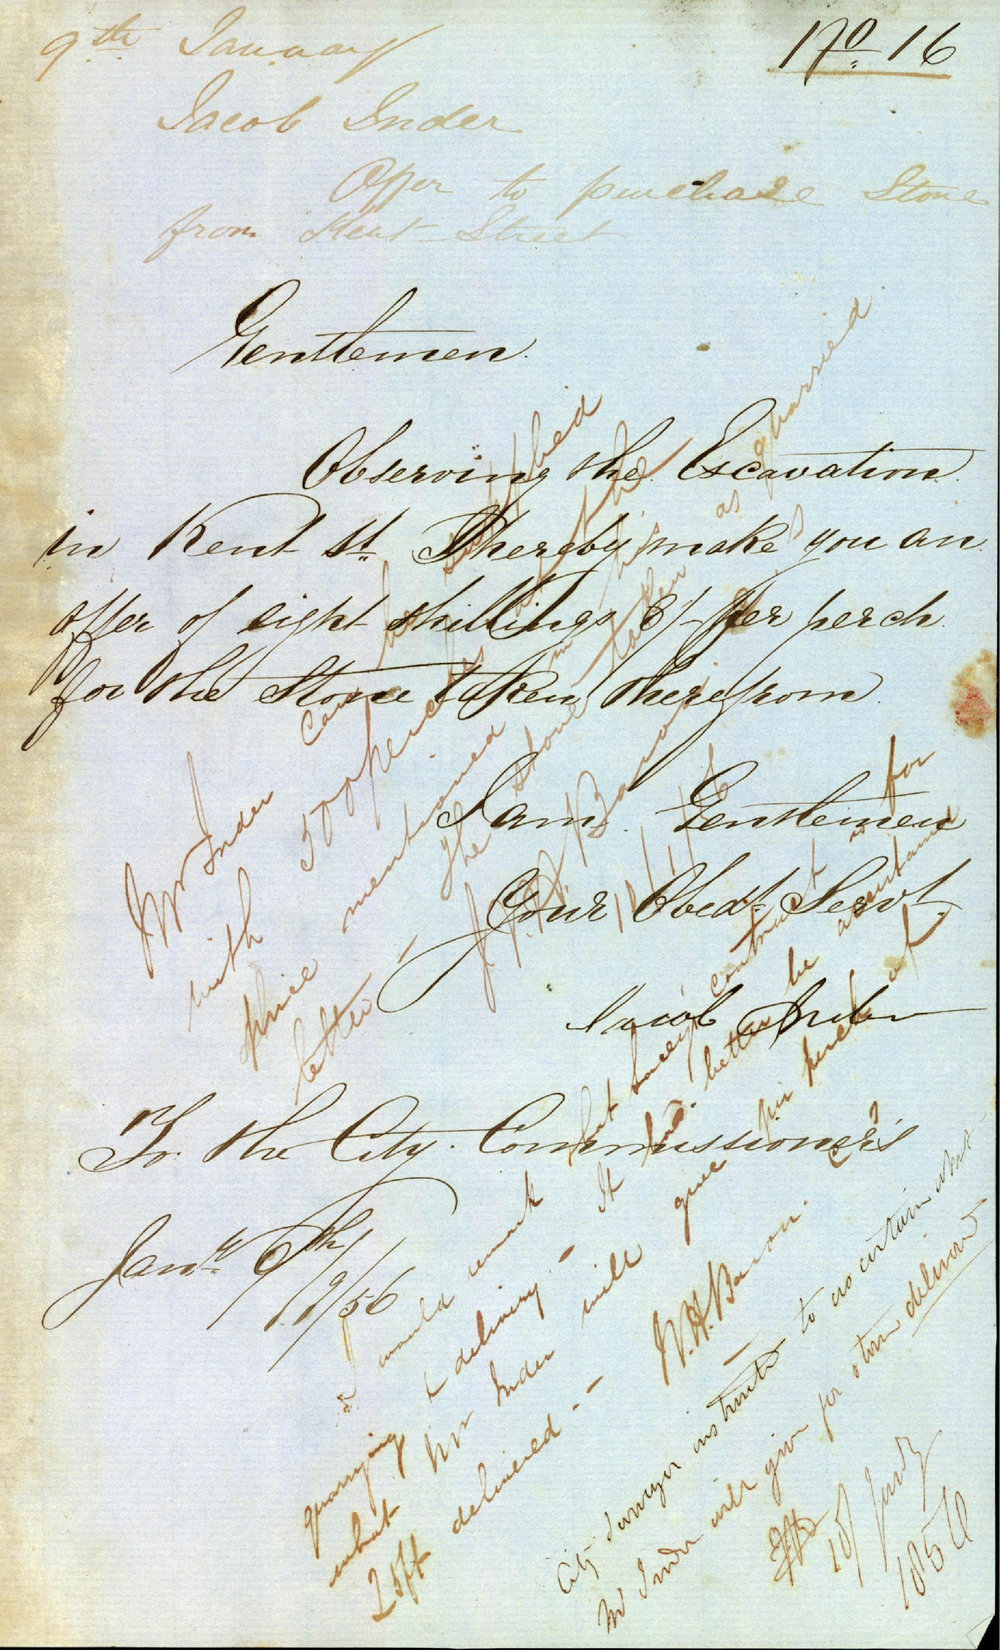 9th January
No. 16
Jacob Inder
Offer to purchase Stone
from Kent Street
Gentlemen.
Observing the Excavation
in Kent St. I hereby make you an
offer of eight shillings 8/- per perch
for the Stone taken therefrom
I am Gentlemen
Your Obedt. Servt.
Jacob Inder
To the City Commissioners
Jany. 9th/
1856
Mr Inder can be supplied
with 500 perches at the
price mentioned in his
letter - The stone taken as quarried
W.H. Baron
11/1/56
I would remark that Lacey's contract is for
quarrying & delivery - It had better be ascertained
what Mr Inder will give per perch of
25ft delivered - W.H. Baron. C.S.
City Surveyor instructed to ascertain what
Mr Inder will give for stone delivered
10/ Jany
1856